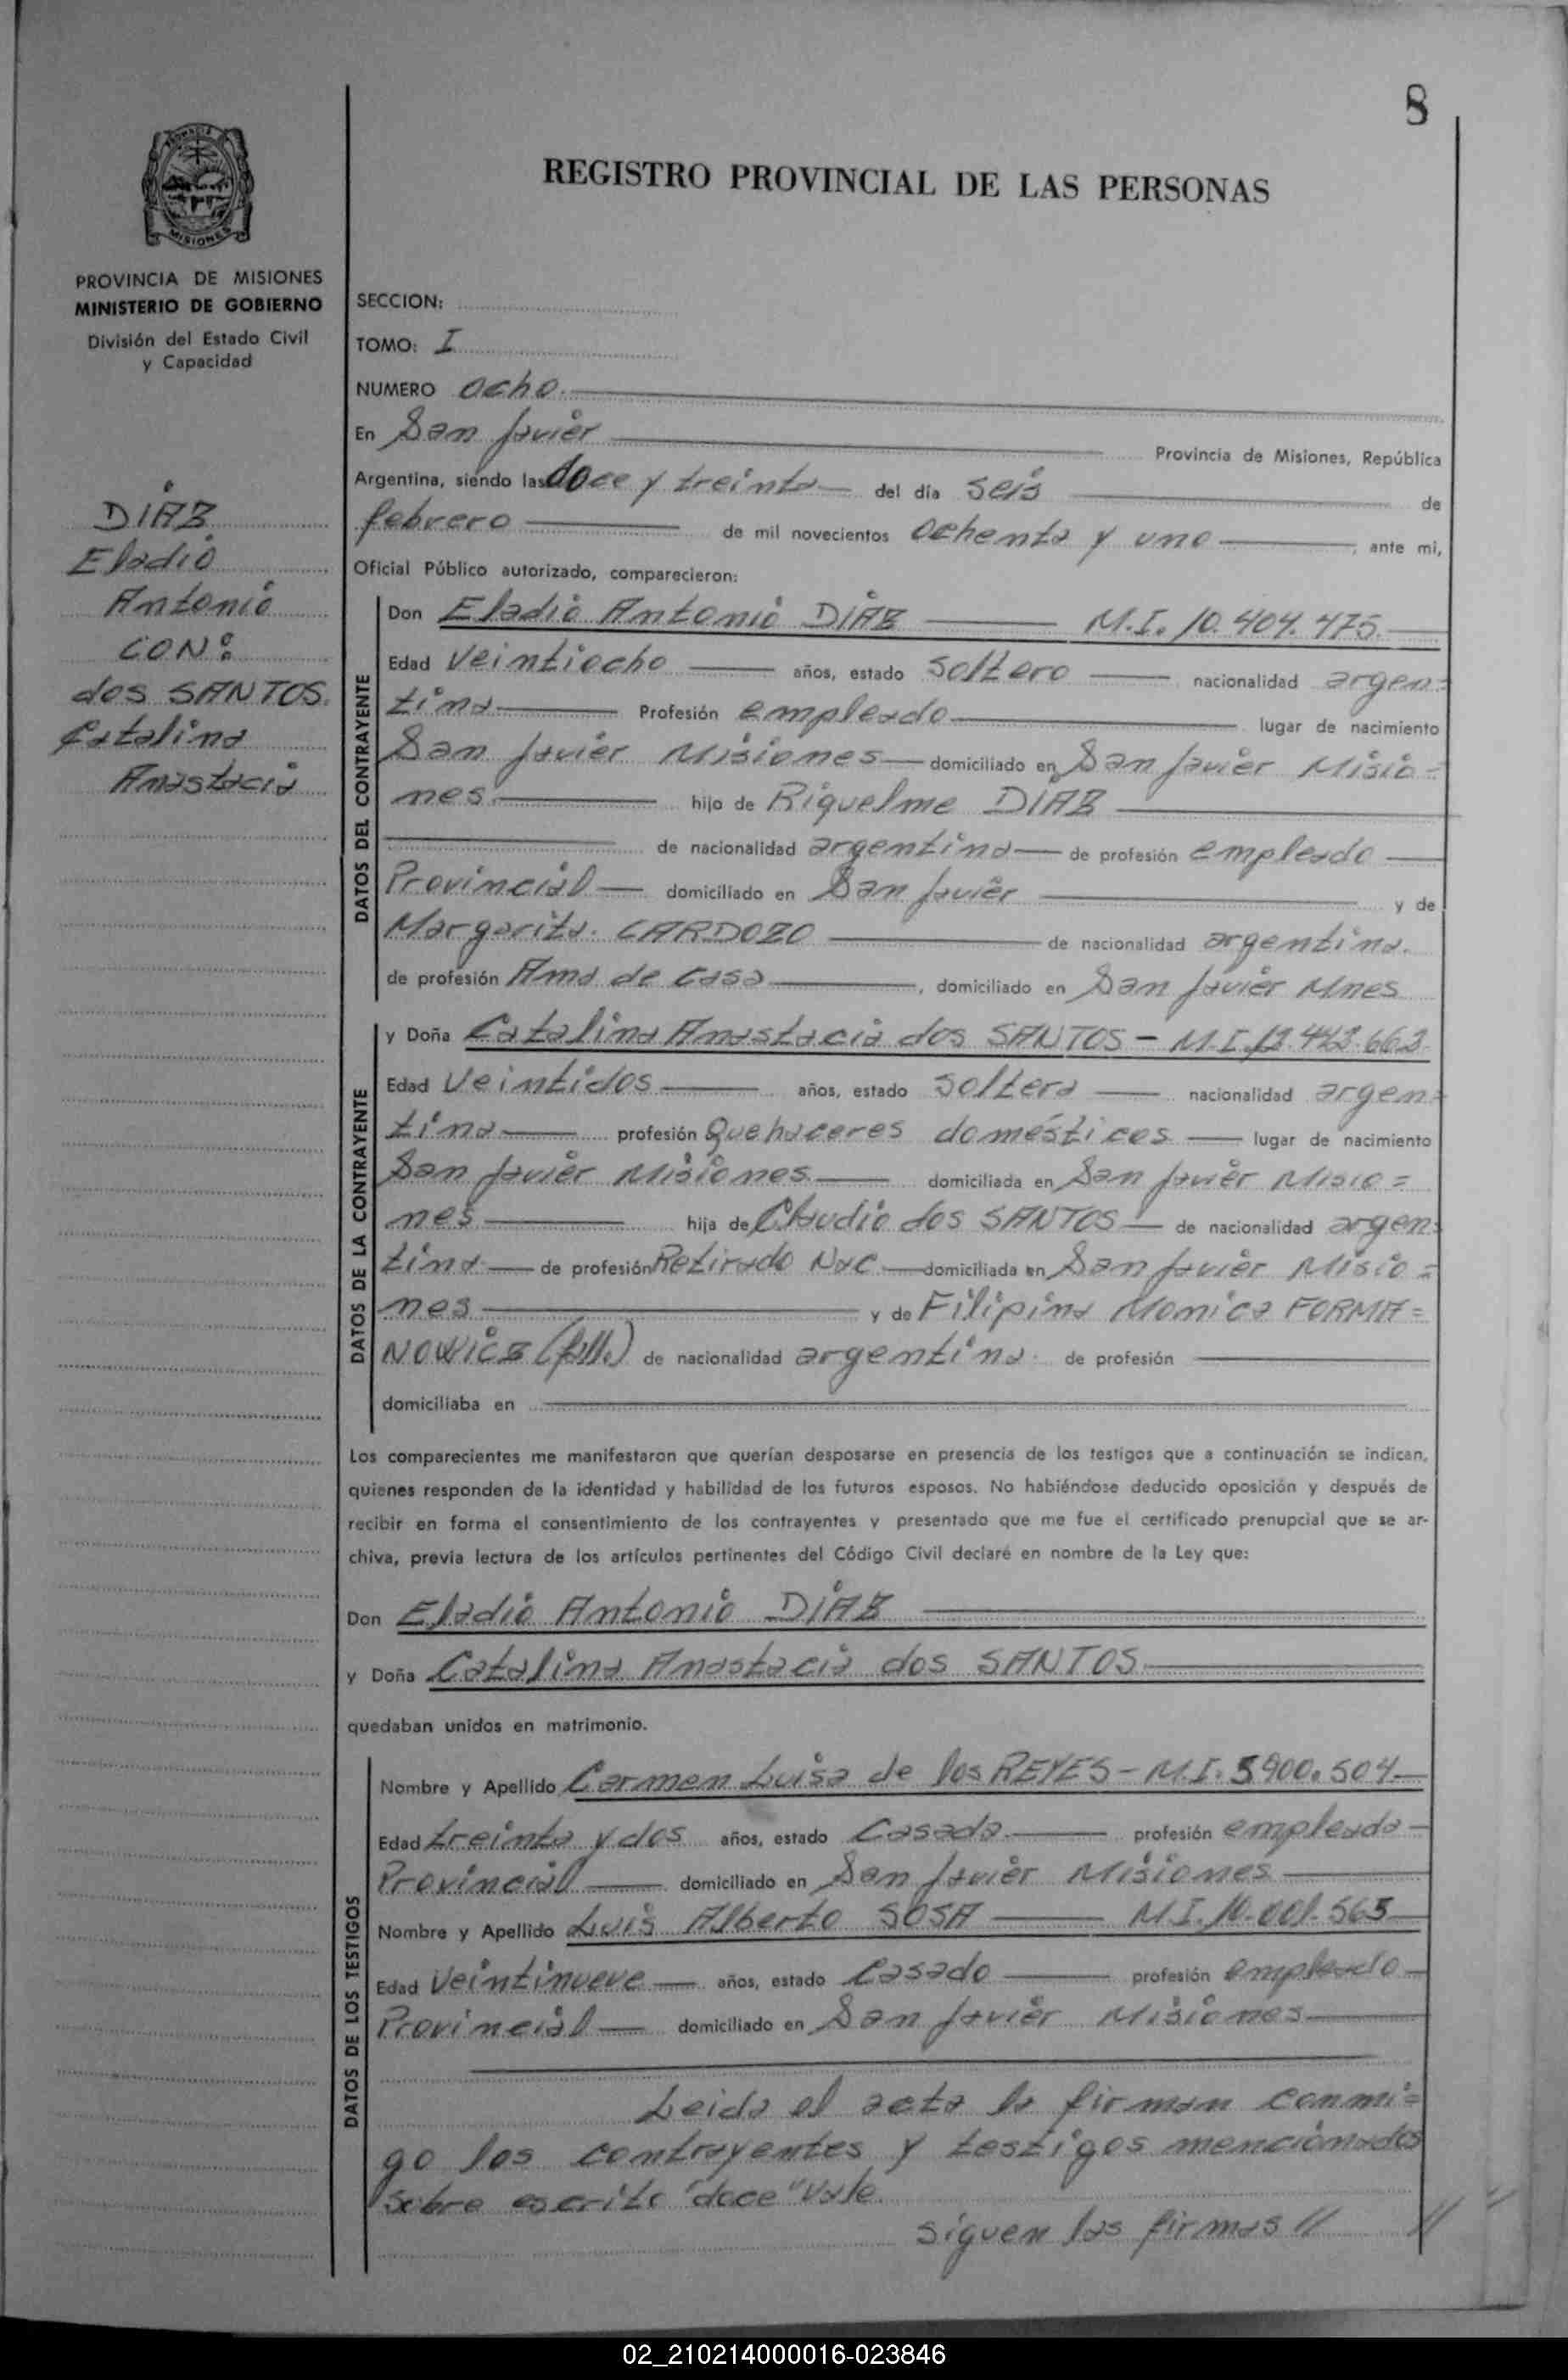 8
REGISTRO PROVINCIAL DE LAS PERSONAS
MISIONES
PROVINCIA DE MISIONES
MINISTERIO DE GOBIERNO
División del Estado Civil
y Capacidad
DIAZ
Eladio
Antonio
CON:
dos SANTOS
Catalina
Anastacia
SECCION:
TOMO: I
NUMERO ocho
En San Javier Provincia de Misiones, República
Argentina, siendo las doce y treinta del día seis de
febrero de mil novecientos ochenta y uno, ante mi,
Oficial Público autorizado, comparecieron:
DATOS DEL CONTRAYENTE
Don Eladio Antonio DIAZ M.I. 10.404.475.
Edad Veintiocho años, estado Soltero nacionalidad argen=
tina Profesión empleado lugar de nacimiento
San Javier Misiones domiciliado en San Javier Misio=
nes hijo de Riquelme DIAZ
de nacionalidad argentina de profesión empleado
Provincial domiciliado en San Javier y de
Margarita CARDOZO de nacionalidad argentina.
de profesión Ama de casa, domiciliado en San Javier Mnes
DATOS DE LA CONTRAYENTE
y Doña Catalina Anastacia dos SANTOS - M.I.
Edad Veintidos años, estado Soltera nacionalidad argen=
tina profesión Quehaceres domésticos lugar de nacimiento
San Javier Misiones domiciliada en San Javier Misio=
nes hija de Claudio dos SANTOS de nacionalidad argen=
tina de profesión Retirado Nac domiciliada en San Javier Misio=
nes y de Filipina Monica FORMA=
NOWICZ (fall.) de nacionalidad argentina de profesión
domiciliaba en
Los comparecientes me manifestaron que querían desposarse en presencia de los testigos que a continuación se indican,
quienes responden de la identidad y habilidad de los futuros esposos. No habiéndose deducido oposición y después de
recibir en forma el consentimiento de los contrayentes y presentado que me fue el certificado prenupcial que se ar-
chiva, previa lectura de los artículos pertinentes del Código Civil declaré en nombre de la Ley que:
Don Eladio Antonio DIAZ
y Doña Catalina Anastacia dos SANTOS
quedaban unidos en matrimonio.
DATOS DE LOS TESTIGOS
Nombre y Apellido Carmen Luisa de los REYES - M.I. 5.900.504
Edad treinta y dos años, estado Casada profesión empleada
Provincial domiciliado en San Javier Misiones
Nombre y Apellido Luis Alberto SOSA M.I. 10.001.565
Edad Veintinueve años, estado Casado profesión empleado
Provincial domiciliado en San Javier Misiones
Leida el acta la firman conmi=
go los contrayentes y testigos mencionados
Sobre escrito "doce" Vale.
siguen las firmas //
02_210214000016-023846